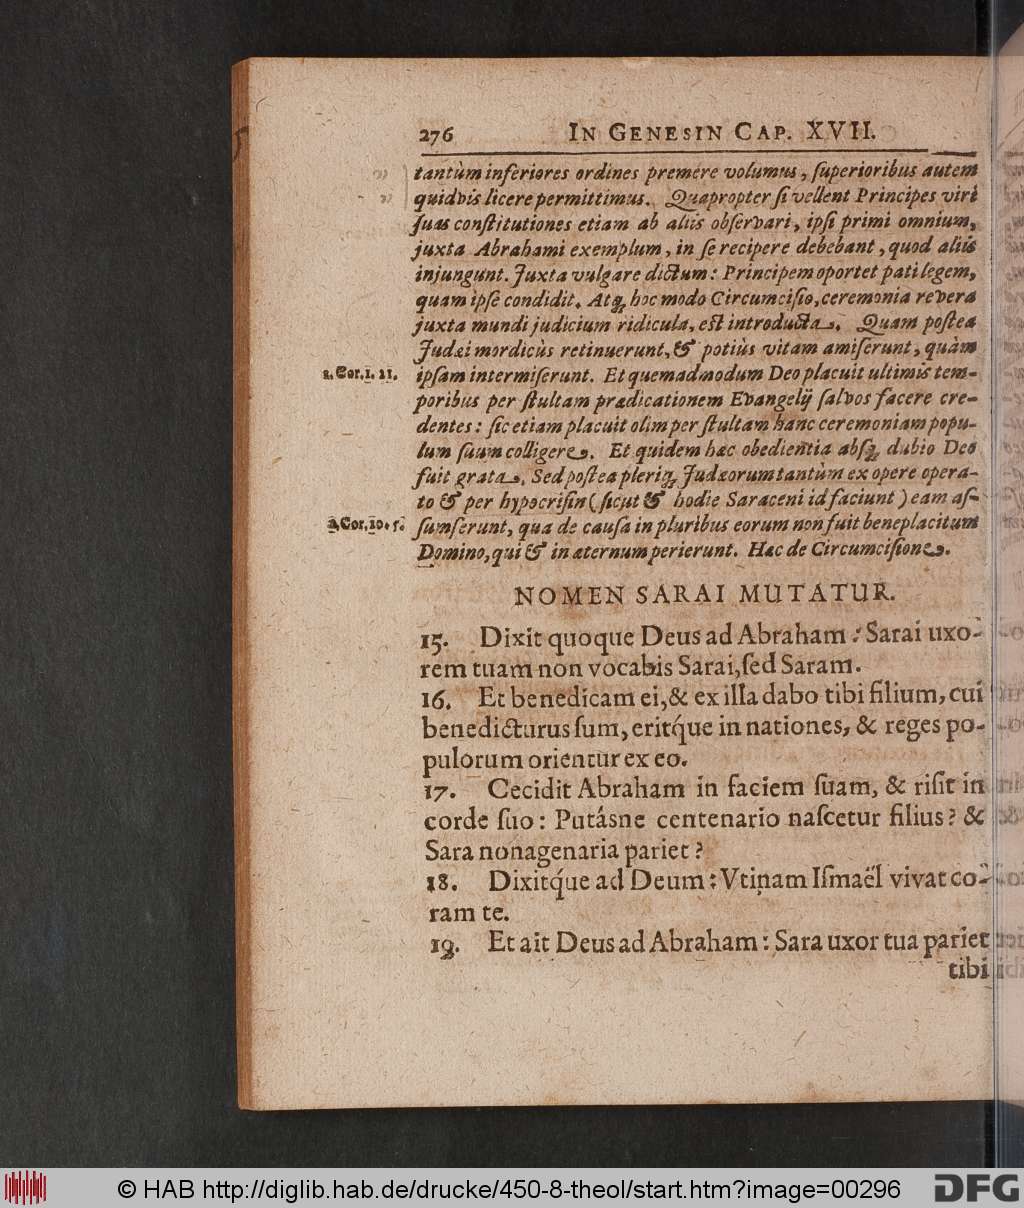 276 IN GENESIN CAP. XVII.
tantùm inferiores ordines premere volumus, ſuperioribus autem
quidvis licere permittimus. Quapropter ſi vellent Principes viri
ſuas conſtitutiones etiam ab aliis obſervari, ipſi primi omnium,
juxta Abrahami exemplum, in ſe recipere debebant, quod aliis
injungunt. Juxta vulgare dictum: Principem oportet pati legem,
quam ipſe condidit. Atq́; hoc modo Circumciſio, ceremonia revera
juxta mundi judicium ridicula, eſt introducta. Quam poſtea
Judæi mordicùs retinuerunt, & potiùs vitam amiſerunt, quàm
1. Cor. 1. 21. ipſam intermiſerunt. Et quemadmodum Deo placuit ultimis tem-
poribus per ſtultam prædicationem Evangelij ſalvos facere cre-
dentes: ſic etiam placuit olim per ſtultam hanc ceremoniam popu-
lum ſuum colligere. Et quidem hæc obedientia abſq́; dubio Deo
fuit grata. Sed poſtea pleriq́; Judæorum tantùm ex opere opera-
to & per hypocriſin (ſicut & hodie Saraceni id faciunt) eam aſ-
1. Cor. 10. 5. ſumſerunt, qua de cauſa in pluribus eorum non fuit beneplacitum
Domino, qui & in æternum perierunt. Hæc de Circumciſione.
NOMEN SARAI MUTATUR.
15. Dixit quoque Deus ad Abraham: Sarai uxo-
rem tuam non vocabis Sarai, ſed Saram.
16. Et benedicam ei, & ex illa dabo tibi filium, cui
benedicturus ſum, eritq́ue in nationes, & reges po-
pulorum orientur ex eo.
17. Cecidit Abraham in faciem ſuam, & riſit in
corde ſuo: Putásne centenario naſcetur filius? &
Sara nonagenaria pariet?
18. Dixitq́ue ad Deum: Vtinam Iſmaël vivat co-
ram te.
19. Et ait Deus ad Abraham: Sara uxor tua pariet
tibi
© HAB http://diglib.hab.de/drucke/450-8-theol/start.htm?image=00296
DFG